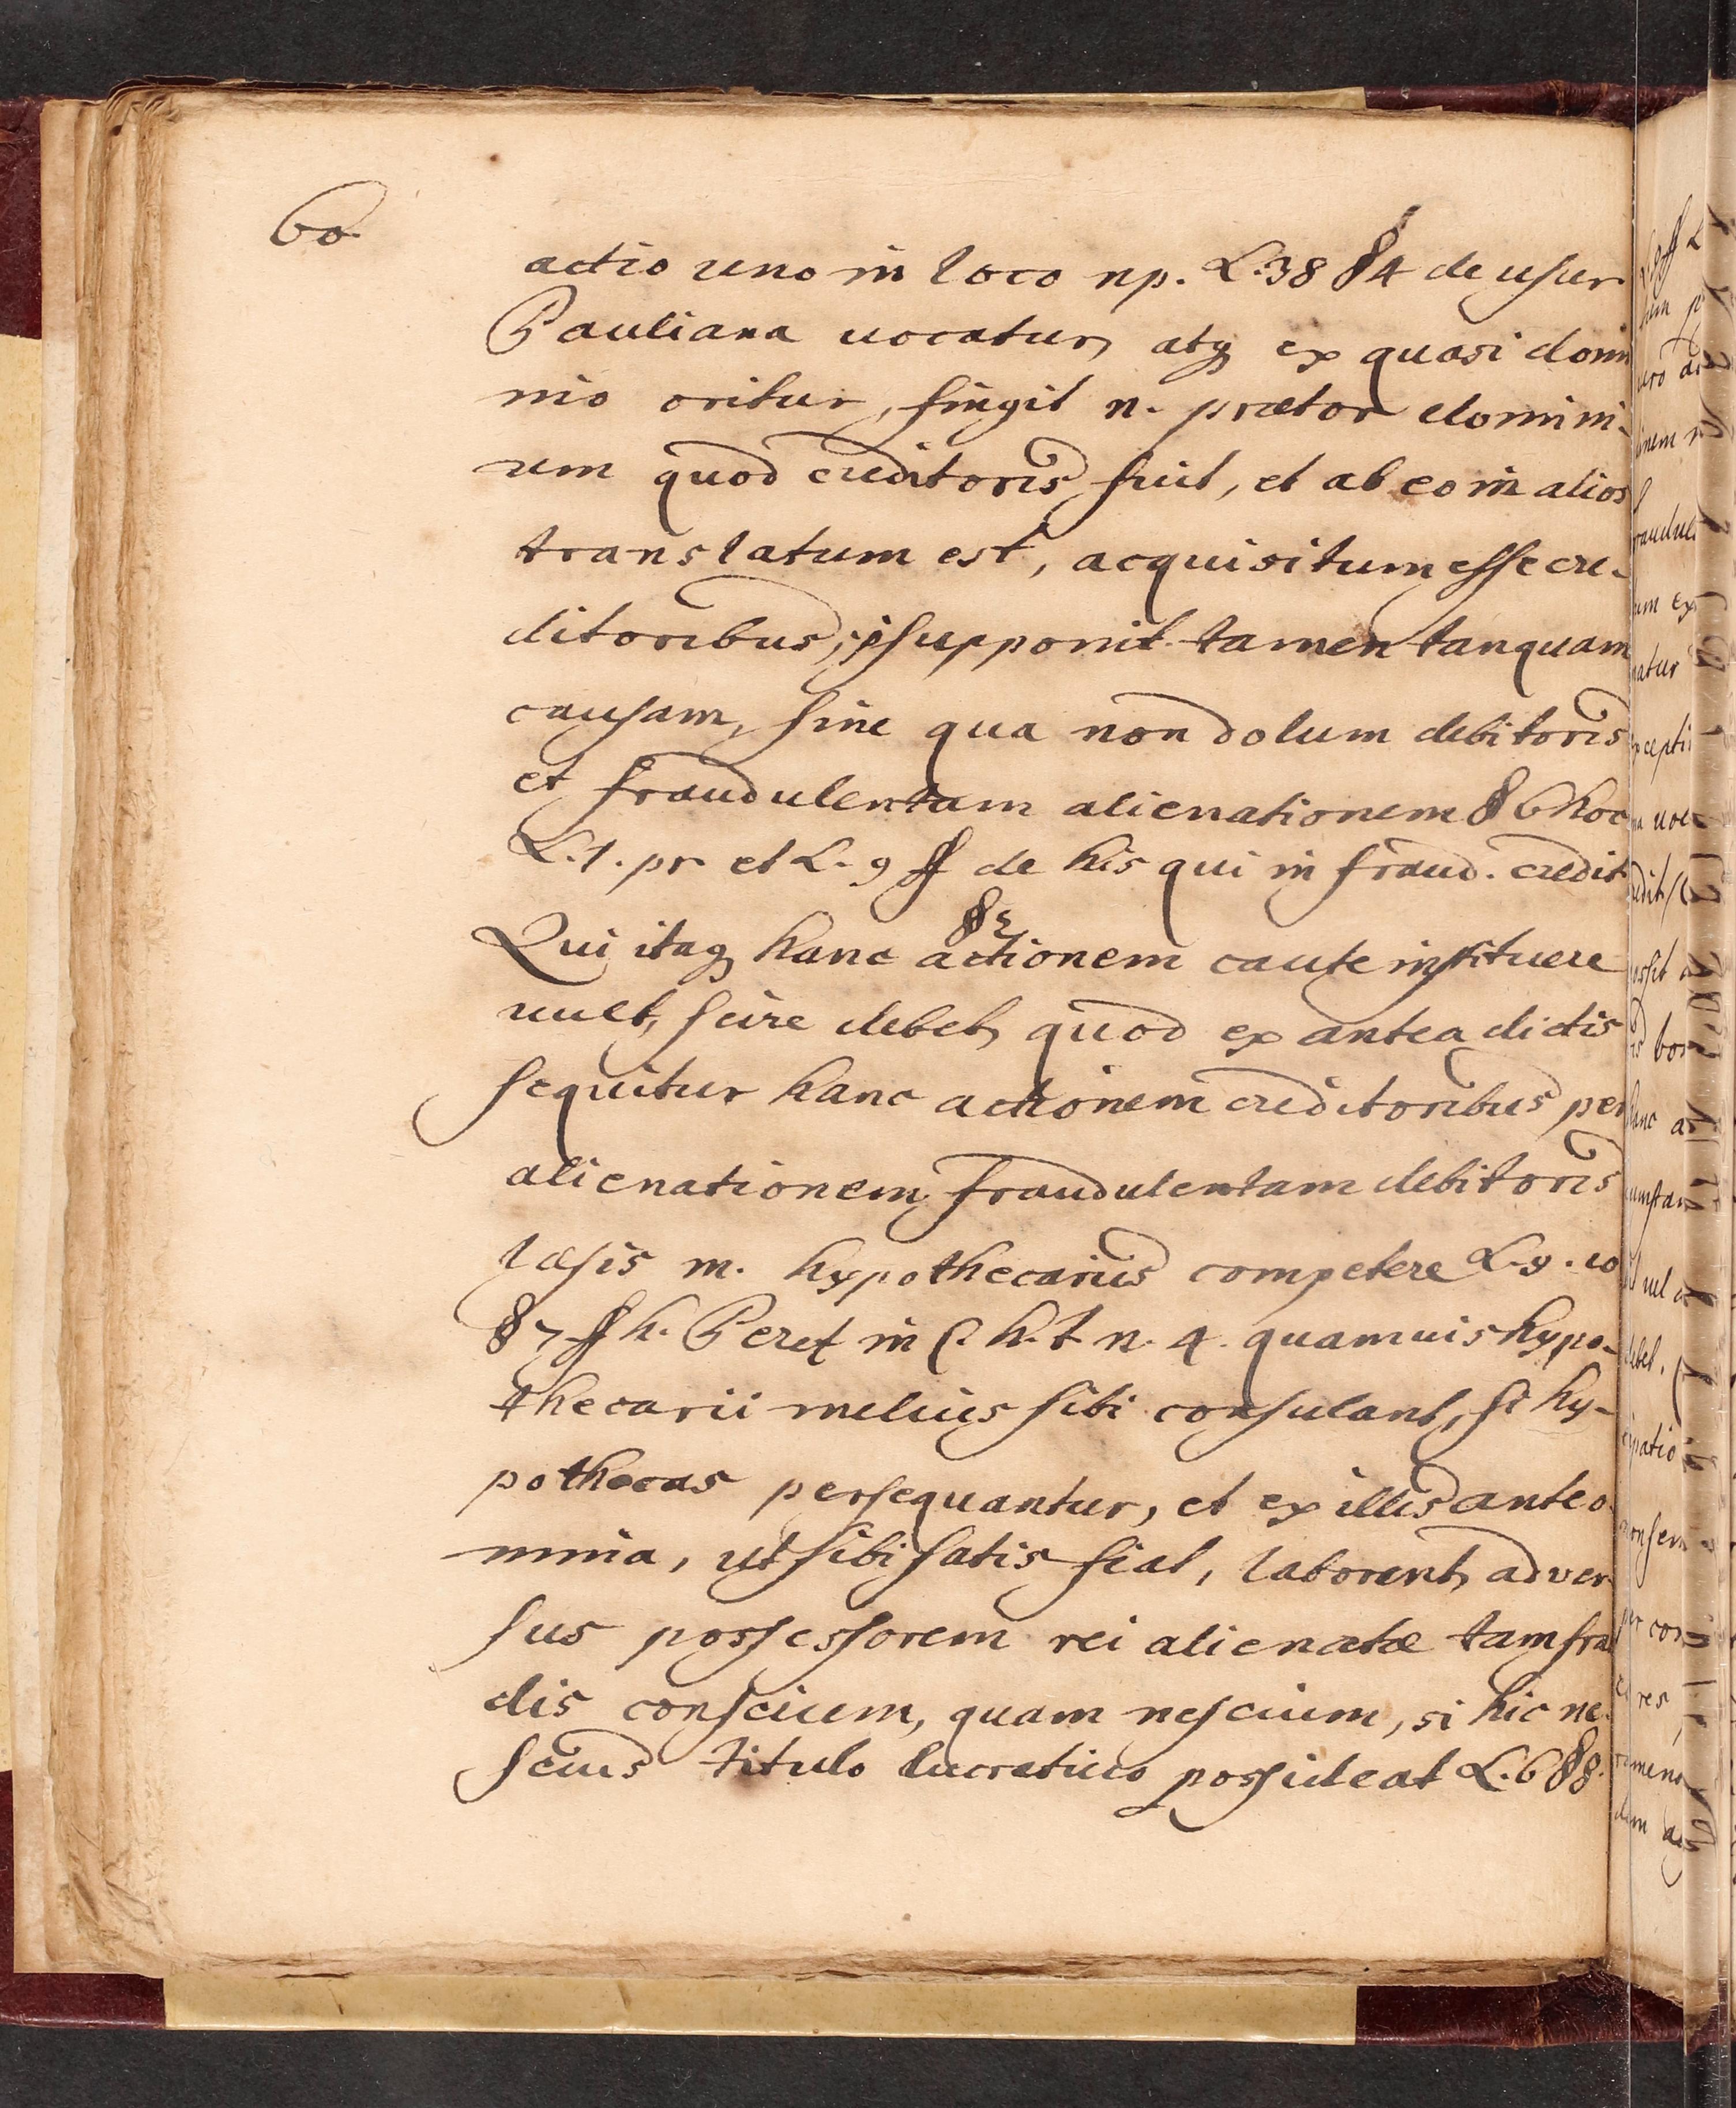 60.
actio uno in loco np. L. 38 § 4 de usur
Pauliana uocatur, atq ex quasi domi
nio oritur, fingit n. prætor domini-
um quod creditoris fuit, et ab eo in alios
translatum est, acquisitum esse cre-
ditoribus, supponit tamen tanquam
causam, sine qua non dolum debitoris
et fraudulentam alienationem § 6 hoc
L. 1. pr et L. 9 ff de his qui in fraud. credit.
§ 2
Qui itaq hanc actionem caute instituere
uult, scire debet, quod ex antea dictis
sequitur hanc actionem creditoribus per
alienationem fraudulentam debitoris
læsis m. hypothecarius competere L. 9. 10
§ 7 ff h. Peret in C. h. t n. 4. quamuis hypo-
thecarii melius sibi consulant, si hy-
pothecas persequantur, et ex illis ante o
mnia, ut sibi satis fiat, laborent, adver
sus possessorem rei alienatæ tam fra
dis conscium, quam nescium, si hic ne-
scius titulo lucratiuo possideat L. 6 § 8.